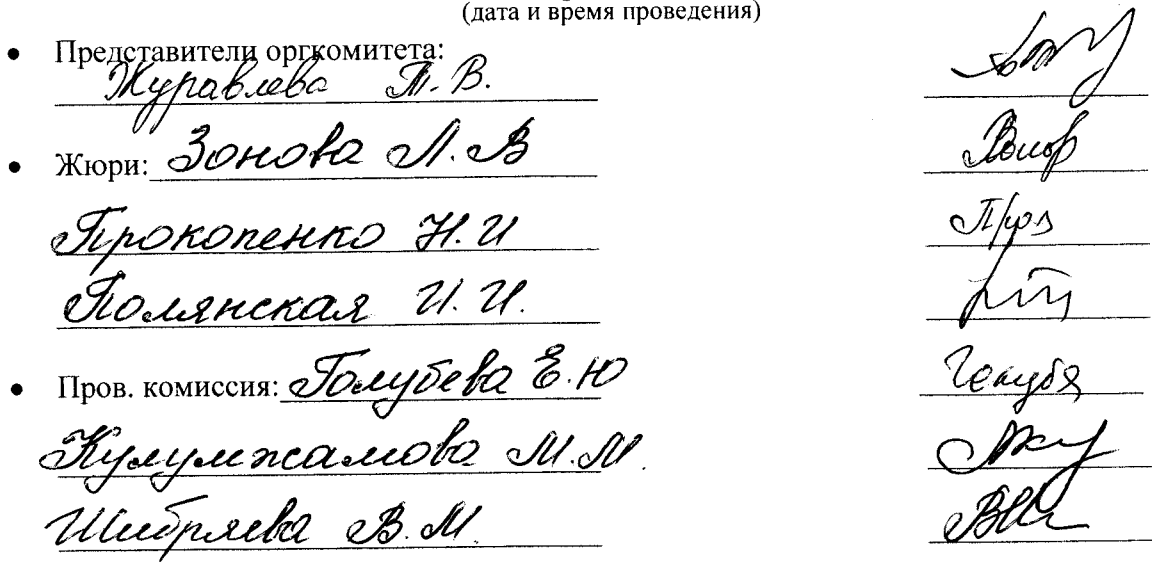 (дата и время проведения)
• Представители оргкомитета:
Журавлева Т.В.
• Жюри: Зонова Л.В
Прокопенко Н.И
Полянская И.И.
• Пров. комиссия: Голубева Е.Ю
Кулумжамова М.М.
Шибряева В.М.